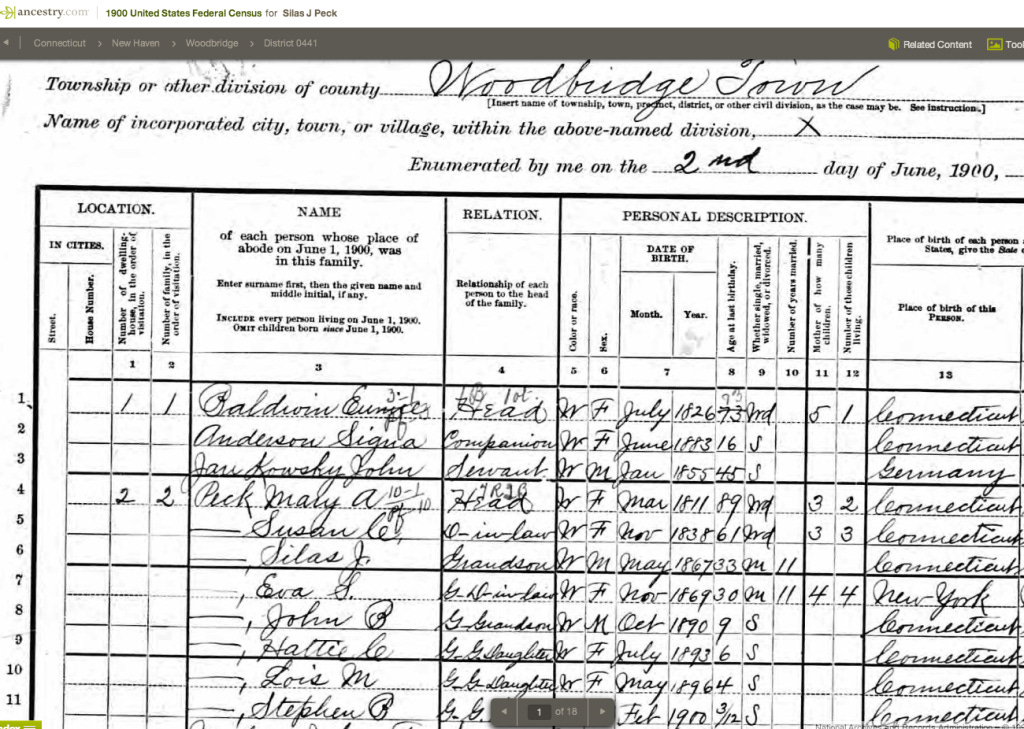 ancestry.com 1900 United States Federal Census for Silas J Peck
Connecticut > New Haven > Woodbridge > District 0441 Related Content Tool
Township or other division of county Woodbridge Town
[Insert name of township, town, precinct, district, or other civil division, as the case may be. See instructions.]
Name of incorporated city, town, or village, within the above-named division, X
Enumerated by me on the 2nd day of June, 1900,
LOCATION. NAME RELATION. PERSONAL DESCRIPTION.
IN CITIES.
Street.
House Number.
Number of dwelling-house, in the order of visitation.
Number of family, in the order of visitation.
of each person whose place of
abode on June 1, 1900, was
in this family.
Enter surname first, then the given name and
middle initial, if any.
INCLUDE every person living on June 1, 1900.
OMIT children born since June 1, 1900.
Relationship of each
person to the head
of the family.
Color or race.
Sex.
DATE OF
BIRTH.
Month. Year.
Age at last birthday.
Whether single, married, widowed, or divorced.
Number of years married.
Mother of how many children.
Number of these children living.
Place of birth of each person
States, give the State
Place of birth of this
PERSON.
1 2 3 4 5 6 7 8 9 10 11 12 13
1 1 1 Baldwin Head W F July 1826 73 Wd 5 1 Connecticut
2 Anderson Signa Companion W F June 1883 16 S Connecticut
3 Jankowsky John Servant W M Jan 1855 45 S Germany
4 2 2 Peck Mary A Head W F Mar 1811 89 Wd 3 2 Connecticut
5 —— Susan C, D-in-law W F Nov 1838 61 Wd 3 3 Connecticut
6 ——, Silas J. Grandson W M May 1867 33 M 11 Connecticut
7 ——, Eva S. G D-in-law W F Nov 1869 30 M 11 4 4 New York
8 ——, John B G Grandson W M Oct 1890 9 S Connecticut
9 ——, Hattie C G.G.Daughter W F July 1893 6 S Connecticut
10 ——, Lois M G.G.Daughter W F May 1896 4 S Connecticut
11 ——, Stephen B G.G. Feb 1900 3/12 S Connecticut
1 of 18
National Archives and Records Administration